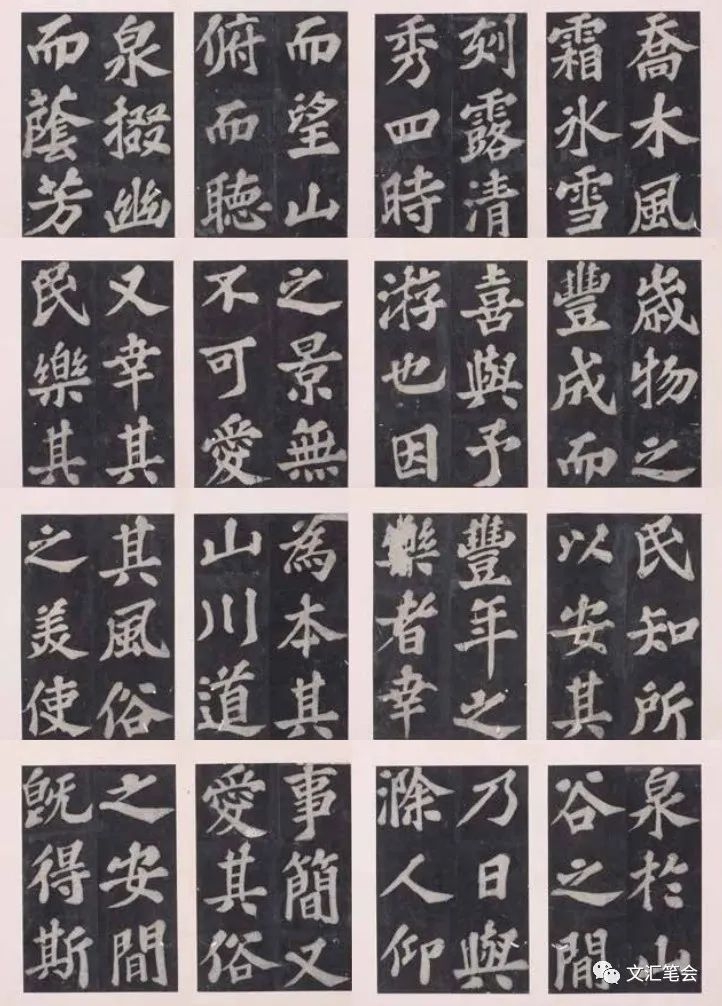 喬木風
霜冰雪
刻露清
秀四時
而望山
俯而聽
泉掇幽
而蔭芳
歲物之
豐成而
喜與予
游也因
之景無
不可愛
又幸其
民樂其
民知所
以安其
豐年之
樂者幸
為本其
山川道
其風俗
之美使
泉於山
谷之間
乃日與
滁人仰
事簡又
愛其俗
之安閒
既得斯
文汇笔会